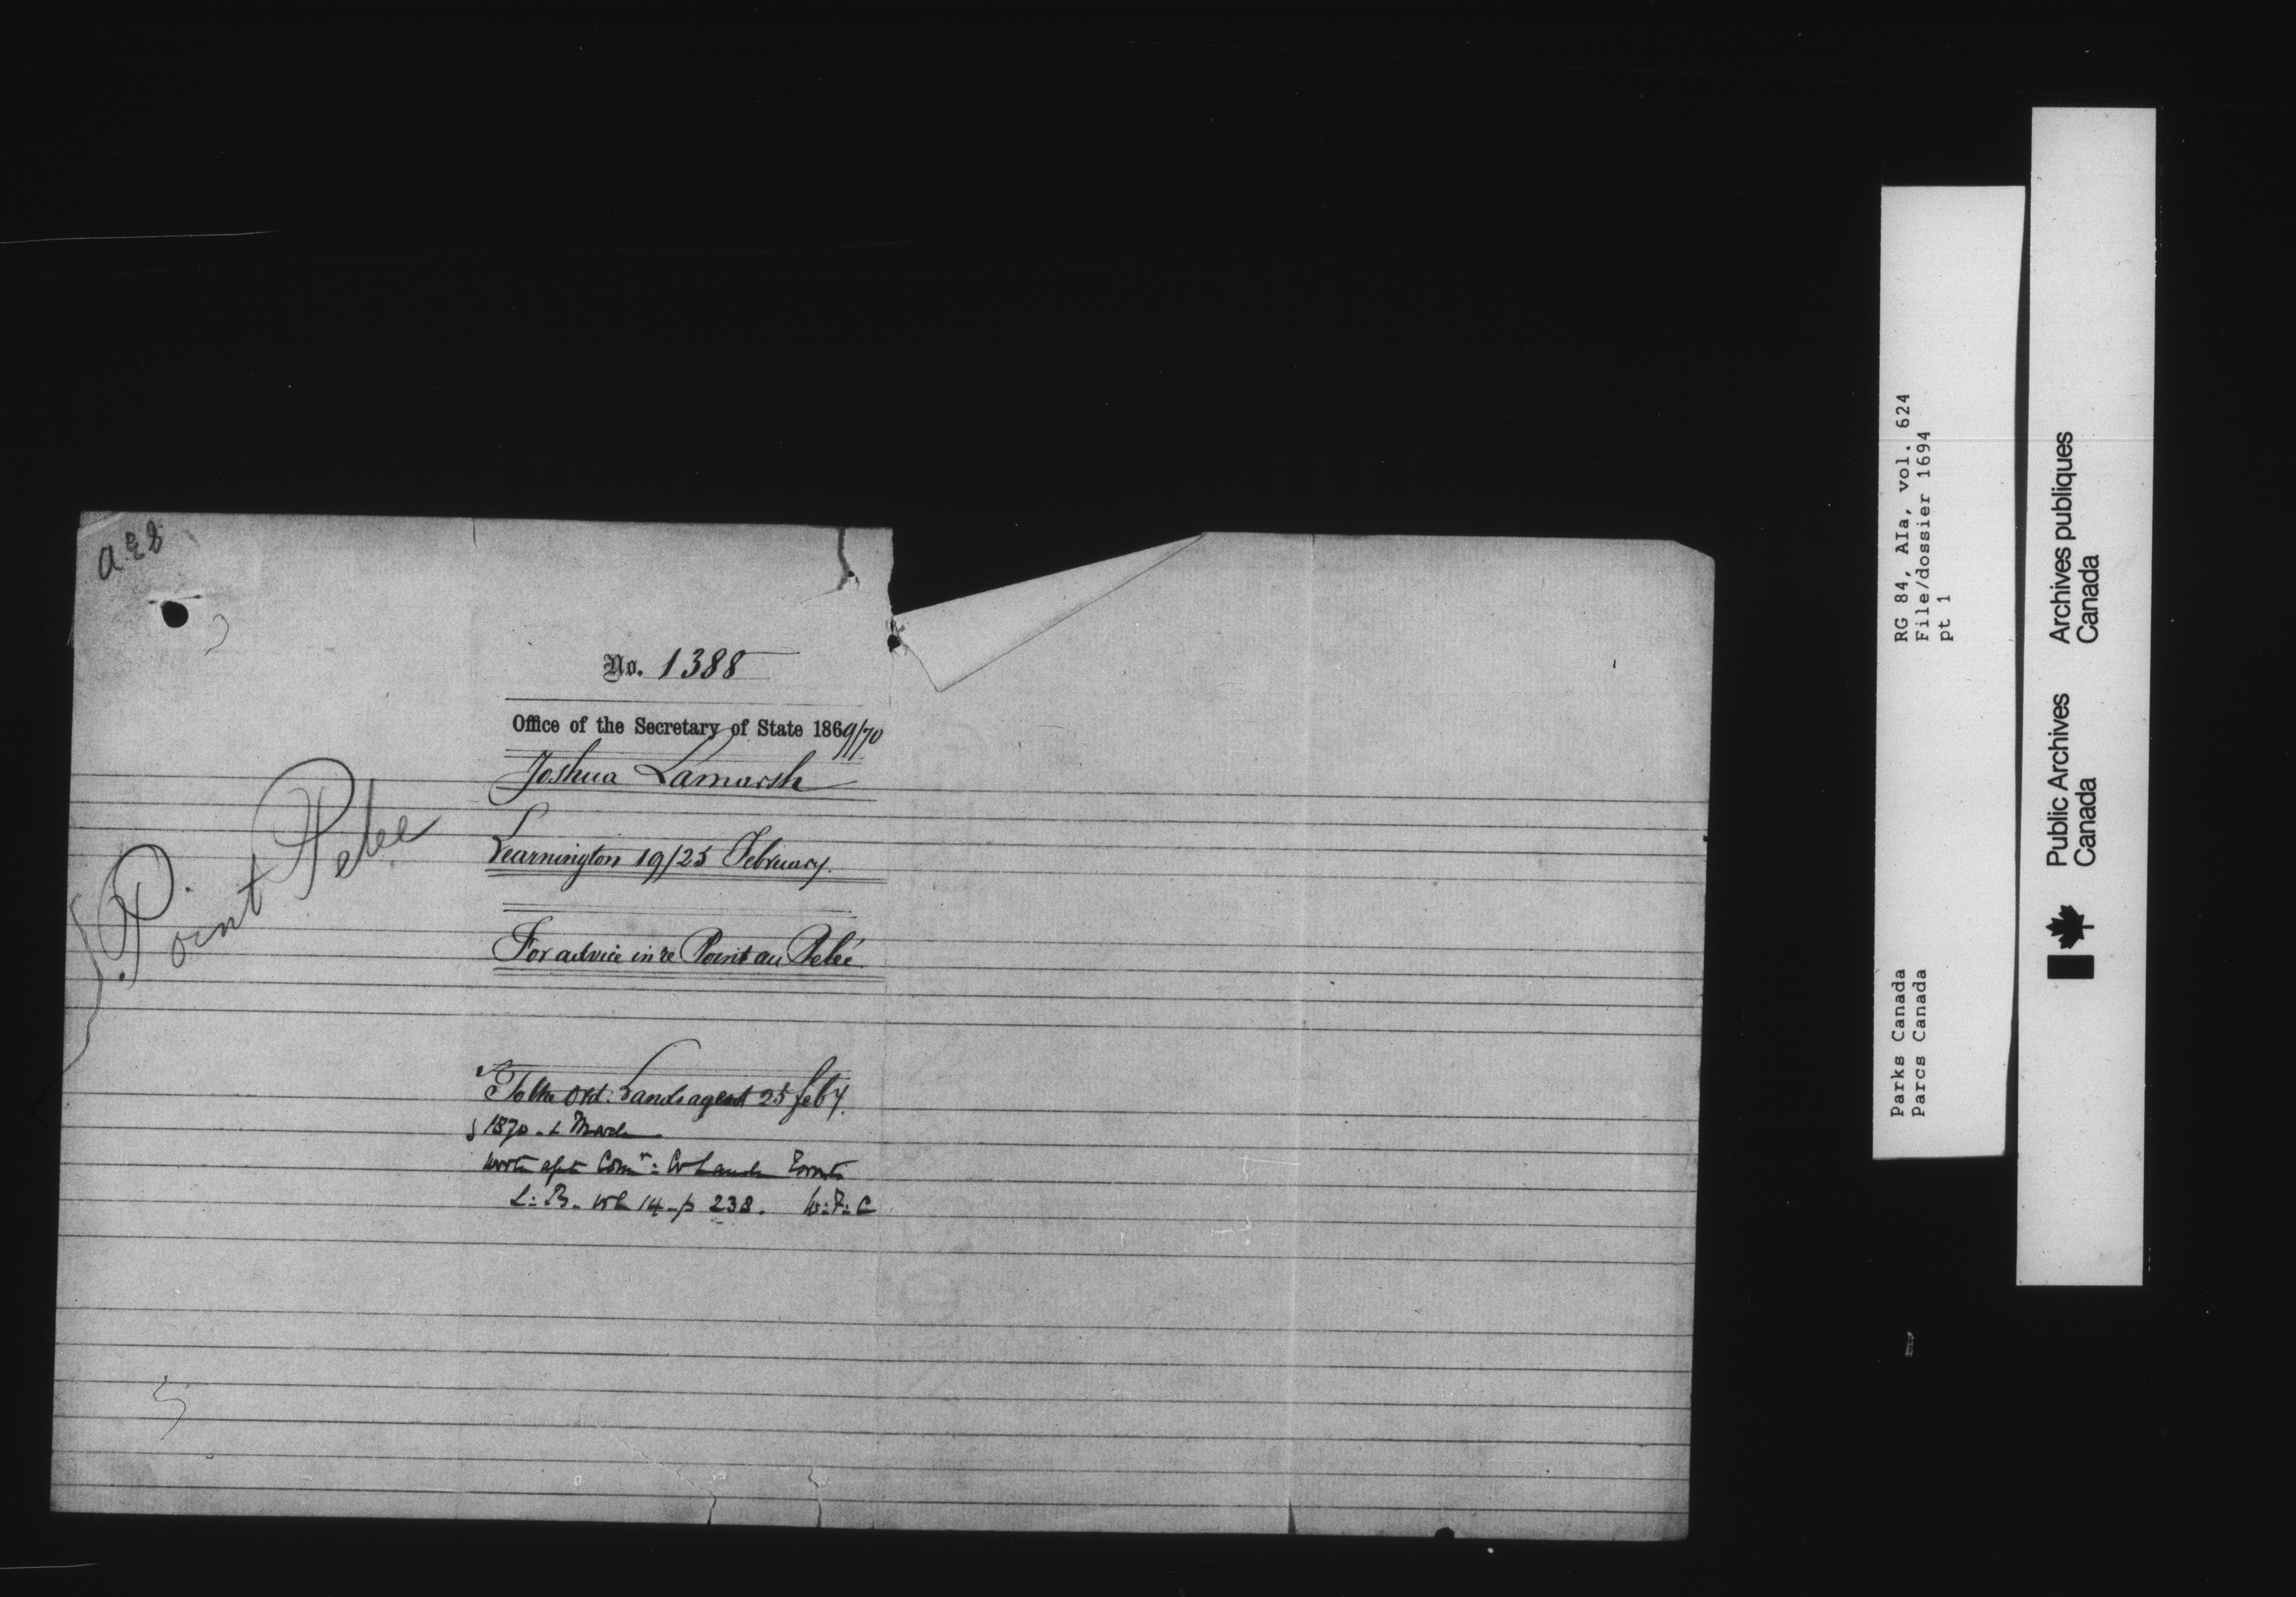 a 28
No. 1388
Office of the Secretary of State 1869/70
Joshua Lamarsh
Leamington 19/25 February.
For advice in re Point au Pelée
Point Pelee
To the Ord. Lands agent 25 Feby.
1870 - 2 March
wrote Comr: Cr Lands Toronto
L: B. vol 14 - p 238. W: F: C
RG 84, AIa, vol. 624
File/dossier 1694
pt 1
Parks Canada
Parcs Canada
Public Archives
Canada
Archives publiques
Canada